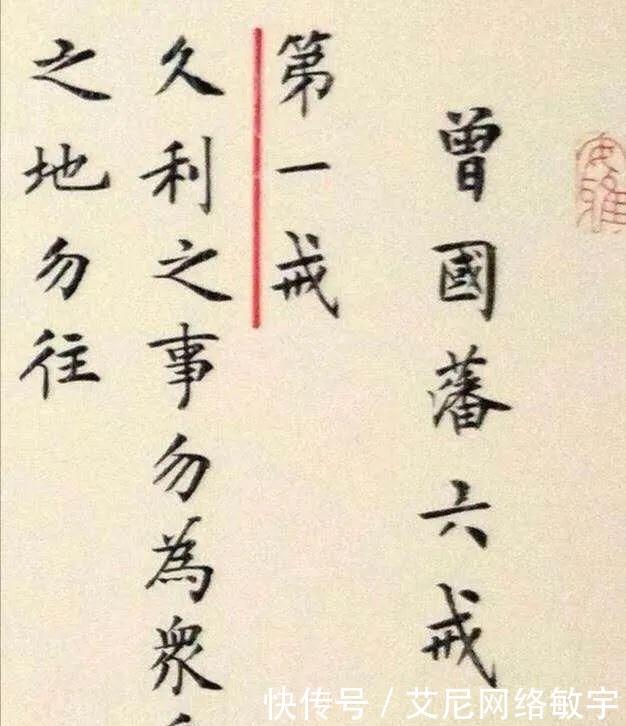 曾國藩六戒
第一戒
久利之事勿為眾
之地勿往
安雅
快传号/艾尼网络敏宇